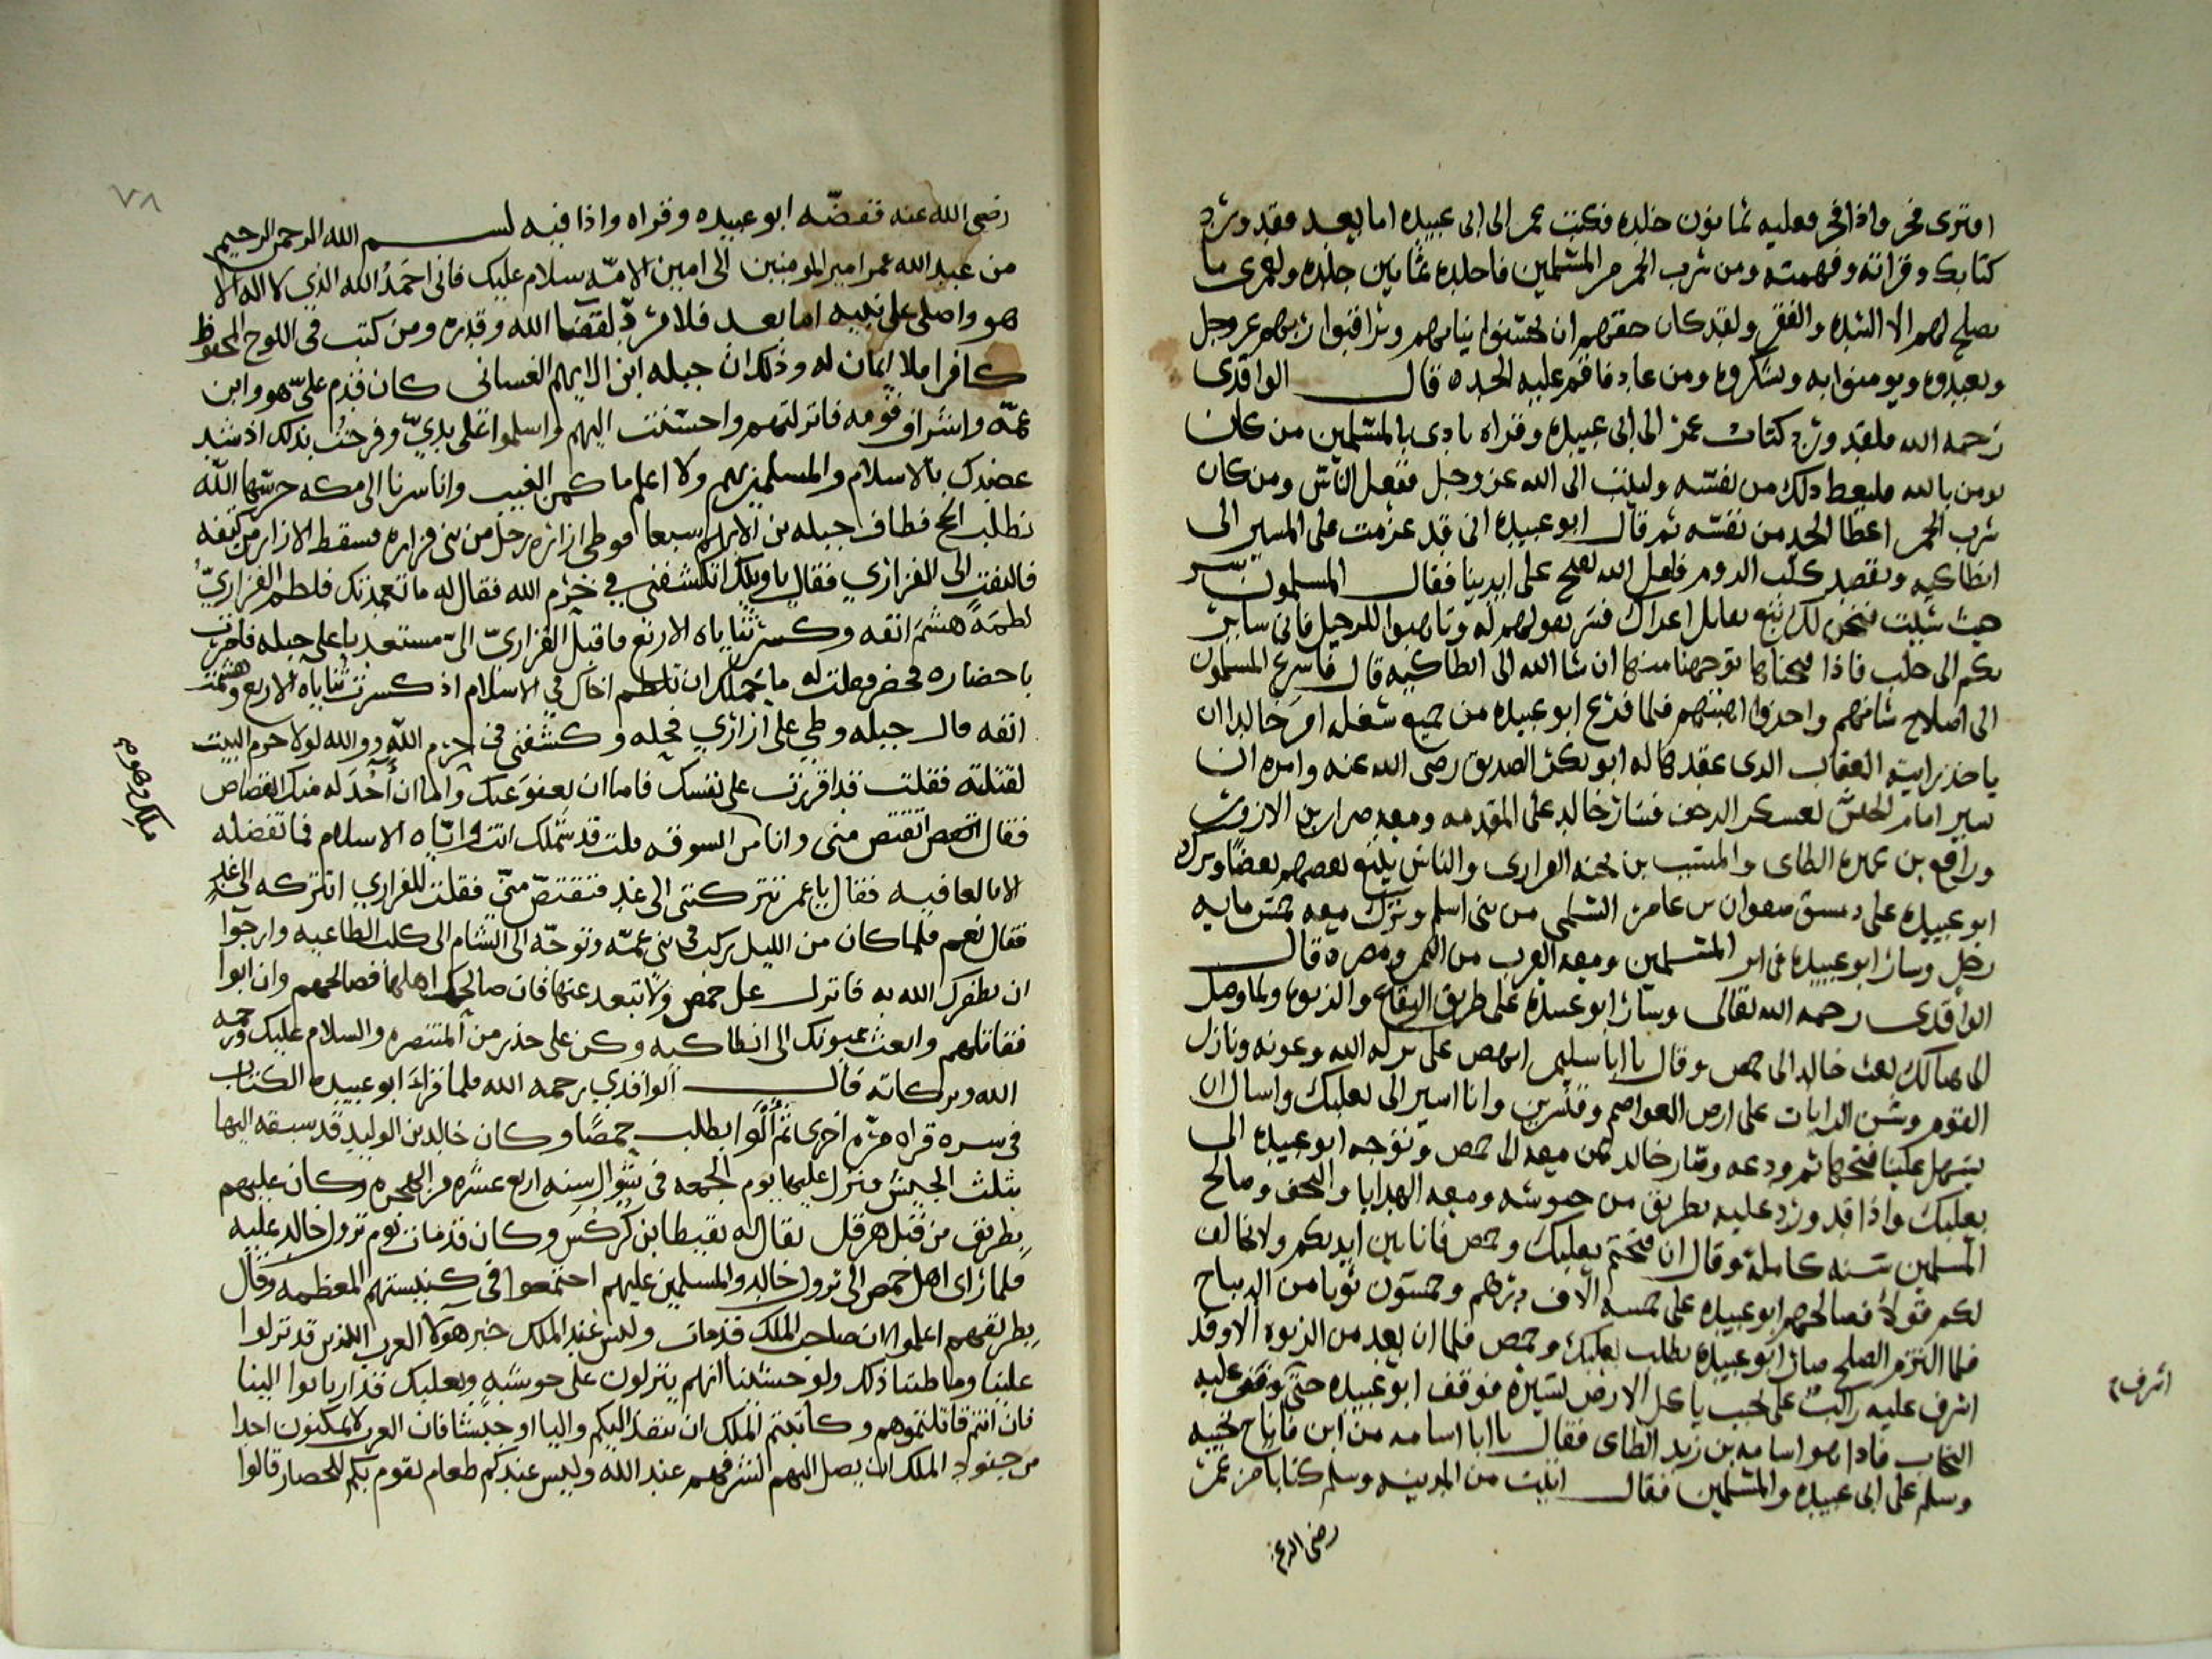 افترى فجر واذا فجر فعليه ثمانون جلده فكتب عمر الى ابى عبيده اما بعد فقد ورد
كتابك وقراته وفهمته ومن شرب الخمر من المسلمين فاجلده ثمانين جلده ولعمرى ما
يصلح لهم الا الشده والفقر ولقد كان حقهم ان يحسنوا نياتهم ويراقبوا ربهم عز وجل
ويعبدوه ويومنوا به ويشكروه ومن عاد فاقم عليه الحد قال الواقدى
رحمه الله فلما ورد كتاب عمر الى ابى عبيده وقراه نادى يا المسلمين من كان
يومن بالله فليعط ذلك من نفسه وليتب الى الله عز وجل ففعل الناس ومن كان
شرب الخمر اعطا الحد من نفسه ثم قال ابو عبيده انى قد عزمت على المسير الى
انطاكيه ونقصد كلب الروم فلعل الله يفتح على ايدينا فقال المسلمون سر
حيث شيت فنحن لك تبع نقاتل اعداك فسر بقولهم له وتاهبوا للرحيل فانى ساير
بكم الى حلب فاذا فتحناها توجهنا منها ان شا الله الى انطاكيه قال فاسرع المسلمون
الى اصلاح شانهم واخذوا اهبتهم فلما فرغ ابو عبيده من جميع شغله امر خالدا ان
ياخذ رايته العقاب الذى عقدها له ابو بكر الصديق رضى الله عنه وامره ان
يسير امام الجيش بعسكر الزحف فسار خالد على المقدمه ومعه ضرار بن الازور
ورافع بن عميره الطاى والمسيب بن نجيه الفزارى والناس يتبع بعضهم بعضا وترك
ابو عبيده على دمشق صفوان بن عامر السلمى من بنى اسلم وترك معه خمس مايه
رجل وسار ابو عبيده فى اثر المسلمين ومعه العرب من اليمن ومصر قال
الواقدى رحمه الله تعالى وسار ابو عبيده على طريق البقاع والزبوه ولما وصل
الى هنالك بعث خالد الى حمص وقال يا ابا سليمن انهض على بركه الله وعونه ونازل
القوم وشن الغارات على ارض العواصم وقنسرين وانا اسير الى بعلبك واسال ان
يسهل علينا فتحها ثم ودعه وسار خالد بمن معه الى حمص وتوجه ابو عبيده الى
بعلبك واذا قد ورد عليه بطريق من جوسيه ومعه الهدايا والتحف وصالح
المسلمين سنه كامله وقال ان فتحتم بعلبك وحمص فانا بين ايديكم ولا نخالف
لكم قولا فصالحهم ابو عبيده على خمسه آلاف درهم وخمسون ثوبا من الديباج
فلما التزم الصلح سار ابو عبيده يطلب بعلبك وحمص فلما ان بعد من الزبوه الا وقد
اشرف عليه راكب على نجيب ياكل الارض بسيره فوقف ابو عبيده حتى وقف عليه
النجاب فاذا هو اسامه بن زيد الطاى فقال يا ابا اسامه من اين فاناخ نجيبه
وسلم على ابى عبيده والمسلمين فقال اتيت من المدينه وسلم كتابا من عمر
رضى الله عنه
اشرف
٧٨
رضى الله عنه ففضّه ابو عبيده وقراه واذا فيه بسم الله الرحمن الرحيم
من عبد الله عمر امير المومنين الى امين الامّه سلام عليك فانى احمدُ الله الذي لا اله الا
هو واصلى على نبيه اما بعد فلا مردّ لقضا الله وقدره ومن كتب فى اللوح المحفوظ
كافرا فلا ايمان له وذلك ان جبله ابن الايهم الغسانى كان قدم علىّ هو وابن
عمّه واشراف قومه فانزلتهم واحسنت اليهم واسلموا على يديّ وفرحتُ بذلك اذ شد
عضدك بالاسلام والمسلمين بهم ولا اعلم ما كمن الغيب وانا سرنا الى مكه حرسها الله
نطلب الحج فطاف جبله بن الايهم سبعا فوطى ازاره رجل من بنى فزاره فسقط الازار من كتفه
فالتفت الى الفزاري فقال يا ويلك انكشفنى في حرم الله فقال له ما تعمدتك فلطم الفزاريّ
لطمةً هشم انفه وكسر ثناياه الاربع فاقبل الفزاريّ الىّ مستعديا على جبله فامرت
باحضاره فحضر فقلت له ما حملك ان تلطم اخاك في الاسلام اذ كسرت ثناياه الاربع وهشمت
انفه قال جبله وطي على ازاري فحله وكشفنى فى حرم الله ووالله لولا حرم البيت
لقتلته فقلت قد اقررت على نفسك فاما ان يعفو عنك واما ان آخذ له منك القصاص
فقال اتقتص منى وانا من السوقه قلت قد شملك انت واياه الاسلام فما تفضله
الا بالعافيه فقال يا عمر تتركنى الى غد فتقتصّ منّى فقلت للفزاري اتتركه الى غد
فقال نعم فلما كان من الليل ركب فى بنى عمّه وتوجّه الى الشام الى كلب الطاغيه وارجوا
ان يظفرك الله به فانزل على حمص ولا تبعد عنها فان صالحك اهلها فصالحهم وان ابوا
فقاتلهم وابعث عيونك الى انطاكيه وكن على حذر من المتنصره والسلام عليك ورحمه
الله وبركاته قال الواقدي رحمه الله فلما قرا ابو عبيده الكتاب
فى سره قراه مرّه اخرى ثم آلوا يطلب حمصًا وكان خالد بن الوليد قد سبقه اليها
بثلث الجيش ونزل عليها يوم الجمعه فى شوال سنه اربع عشره من الهجره وكان عليهم
بطريق من قبل هرقل يقال له نقيطا بن كركس وكان قد مات يوم نزول خالد عليه
فلما راى اهل حمص الى نزول خالد والمسلمين عليهم اجتمعوا فى كنيستهم المعظمه وقال
بطريقهم اعلموا ان صاحب الملك قد مات وليس عند الملك خبر هولا العرب الذين قد نزلوا
علينا وما ظننا ذلك ولو حسبنا انهم ينزلون على جوسيه وبعلبك قد اريا توا الينا
فان انتم قاتلتموهم وكاتبتم الملك ان ينفذ اليكم والينا او جيشا فان العرب لا يمكنون احدا
من جنود الملك ان يصل اليهم لشرفهم عند الله وليس عندكم طعام يقوم بكم للحصار قالوا